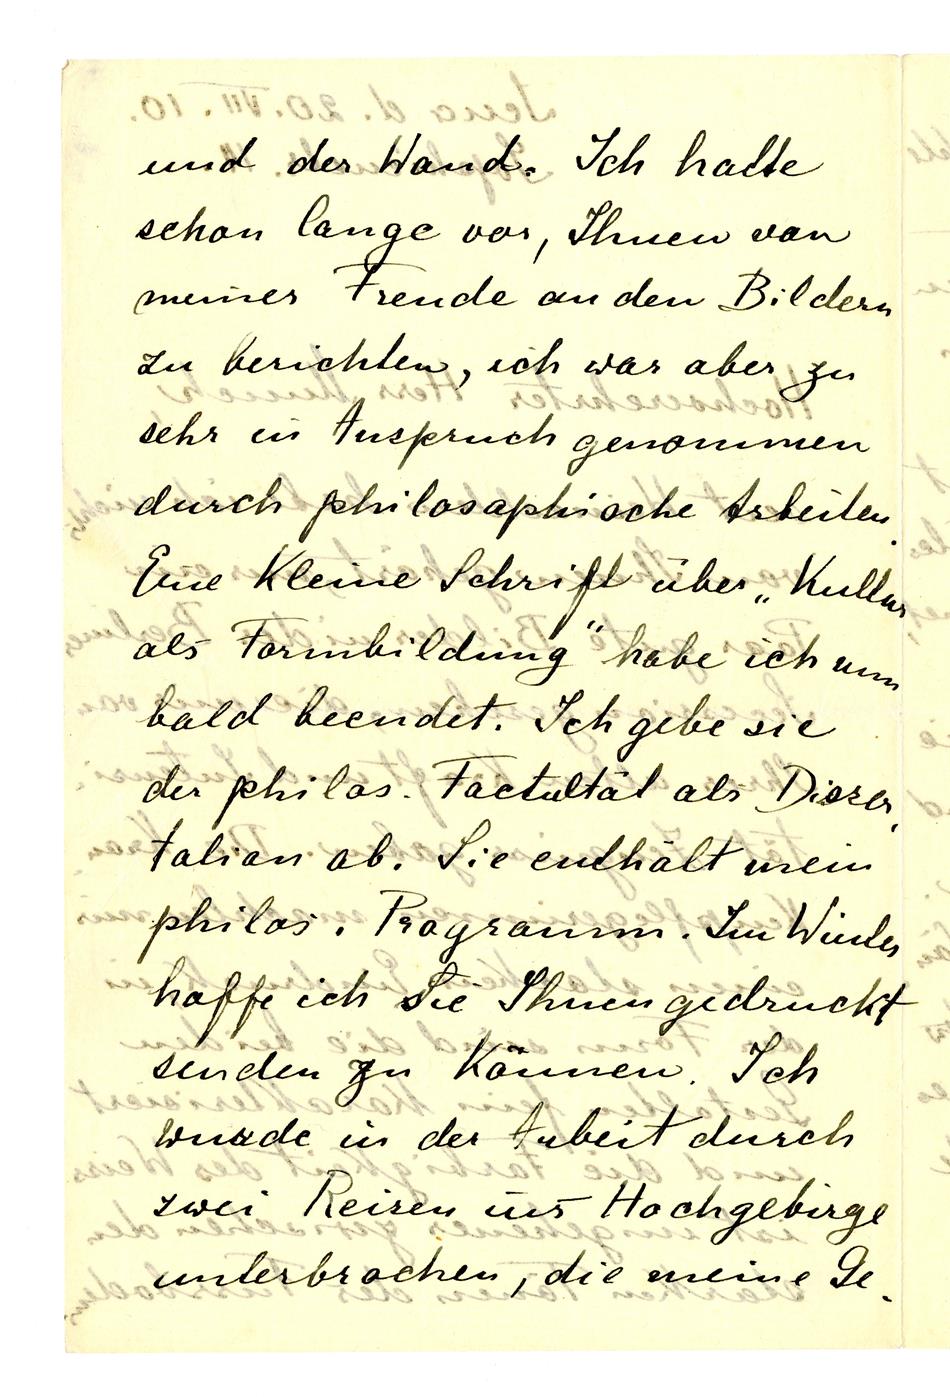 und der Wand. Ich hatte
schon lange vor, Ihnen von
meiner Freude an den Bildern
zu berichten, ich war aber zu
sehr in Anspruch genommen
durch philosophische Arbeiten.
Eine Kleine Schrift über „Kultur
als Formbildung“ habe ich nun
bald beendet. Ich gebe sie
der philos. Facultät als Disser-
tation ab. Sie enthält mein
philos. Programm. Im Winter
hoffe ich Sie Ihnen gedruckt
senden zu Können. Ich
wurde in der Arbeit durch
zwei Reisen ins Hochgebirge
unterbrochen, die meine Ge-